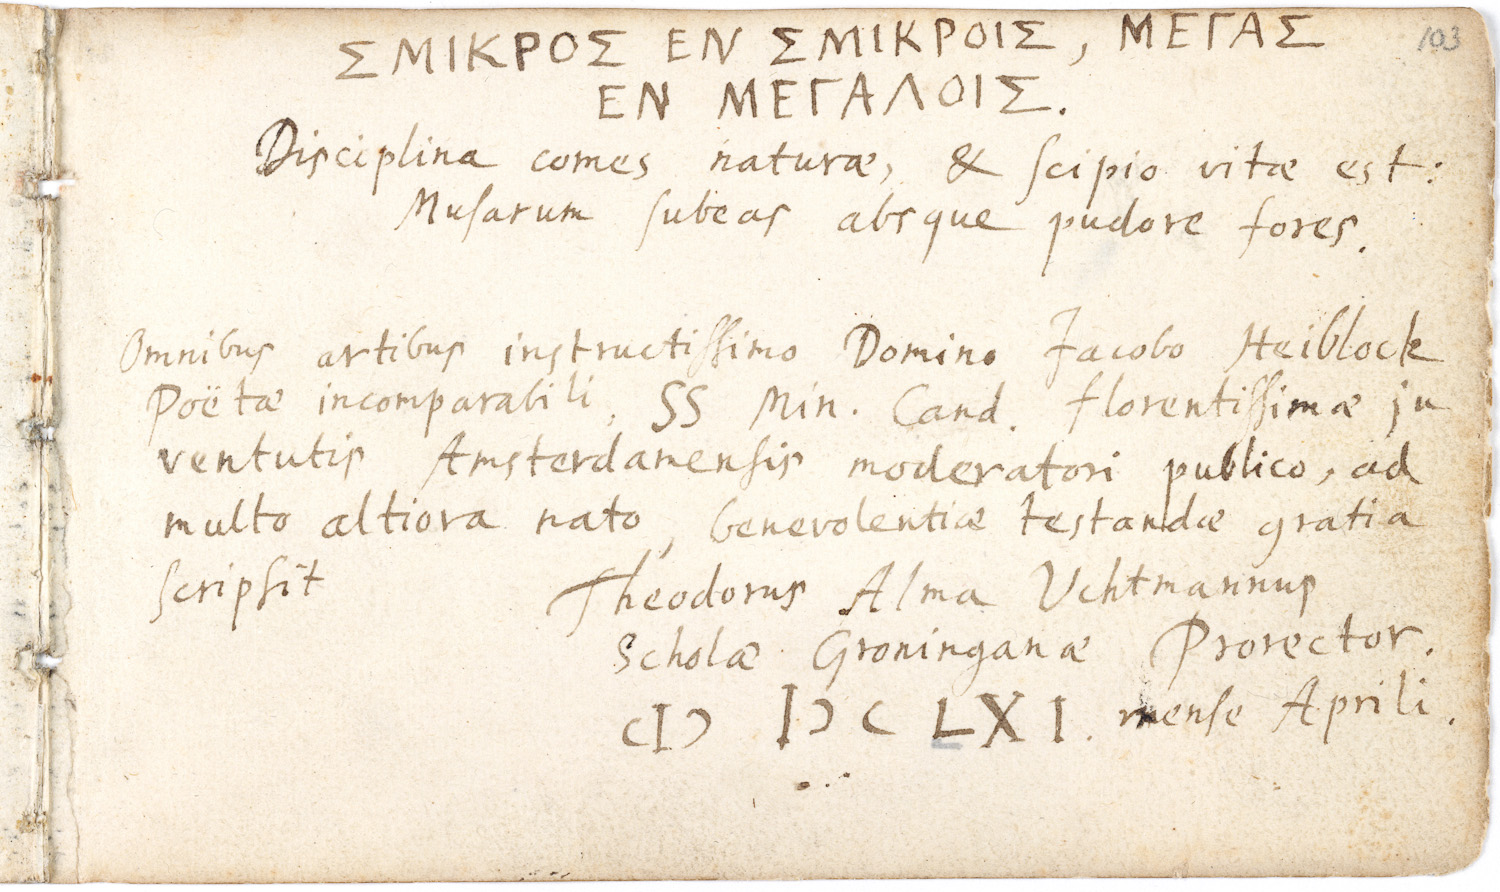 103
ΣΜΙΚΡΟΣ ΕΝ ΣΜΙΚΡΟΙΣ, ΜΕΓΑΣ
ΕΝ ΜΕΓΑΛΟΙΣ.
Disciplina comes naturæ, & scipio vitæ est:
Musarum subeas absque pudore fores.
Omnibus artibus instructissimo Domino Jacobo Heiblock
Poëtæ incomparabili, SS Min. Cand. florentissimæ ju
ventutis Amsterdamensis moderatori publico, ad
multo altiora nato, benevolentiæ testandæ gratia
scripsit Theodorus Alma Uchtmannus
Scholæ Groninganæ Prorector.
CIↃ IↃC LXI. mense Aprili.